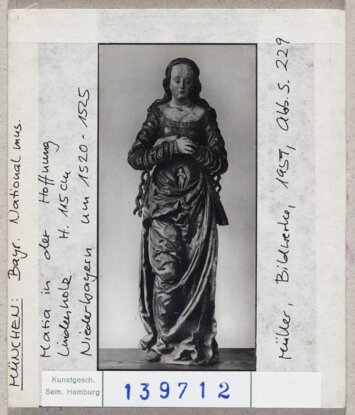 MÜNCHEN: Bayr. Nationalmus.
Maria in der Hoffnung
Lindenholz H. 115 cm
Niederbayern um 1520-1525
Müller, Bildwerke, 1959, Abb. S. 229
Kunstgesch.
Sem. Hamburg
139712